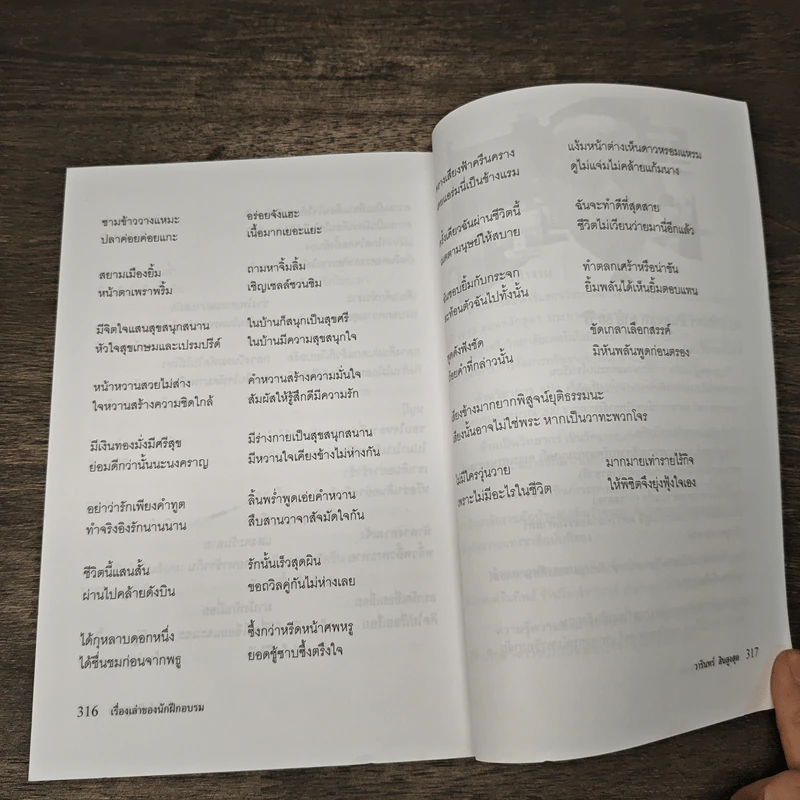 ชามข้าววางแหมะ อร่อยจังแฮะ
ปลาค่อยค่อยแกะ เนื้อมากเยอะแยะ
สยามเมืองยิ้ม ถามหาจิ้มลิ้ม
หน้าตาเพราพริ้ม เชิญเชลล์ชวนชิม
มีจิตใจแสนสุขสนุกสนาน ในบ้านก็สนุกเป็นสุขศรี
หัวใจสุขเกษมและเปรมปรีด์ ในบ้านมีความสุขสนุกใจ
หน้าหวานสวยไม่สร่าง คำหวานสร้างความมั่นใจ
ใจหวานสร้างความชิดใกล้ สัมผัสให้รู้สึกดีมีความรัก
มีเงินทองมั่งมีศรีสุข มีร่างกายเป็นสุขสนุกสนาน
ย่อมดีกว่านั้นนะนงคราญ มีหวานใจเคียงข้างไม่ห่างกัน
อย่าว่ารักเพียงคำทูต ลิ้นพร่ำพูดเอ่ยคำหวาน
ทำจริงอิงรักนานนาน สืบสานวาจาสัจมัดใจกัน
ชีวิตนี้แสนสั้น รักนั้นเร็วสุดผิน
ผ่านไปคล้ายดังบิน ขอถวิลคู่กันไม่ห่างเลย
ได้กุหลาบดอกหนึ่ง ซึ้งกว่าหรีดหน้าศพหรู
ได้ชื่นชมก่อนจากพธู ยอดชู้ซาบซึ้งตรึงใจ
316 เรื่องเล่าของนักฝึกอบรม
เสียงฟ้าครืนคราง แง้มหน้าต่างเห็นดาวหรอมแหรม
เป็นข้างแรม ดูไม่แจ่มไม่คล้ายแก้มนาง
เดียวฉันผ่านชีวิตนี้ ฉันจะทำดีที่สุดสาย
มนุษย์ให้สบาย ชีวิตไม่เวียนว่ายมานี่อีกแล้ว
ชอบยิ้มกับกระจก ทำตลกเศร้าหรือน่าขัน
ตัวฉันไปทั้งนั้น ยิ้มพลันได้เห็นยิ้มตอบแทน
ดังฟังชัด ขัดเกลาเลือกสรรค์
คำที่กล่าวนั้น มิหันพลันพูดก่อนตรอง
ช้างมากยากพิสูจน์ยุติธรรมนะ
นั้นอาจไม่ใช่พระ หากเป็นวาทะพวกโจร
ไม่มีใครวุ่นวาย มากมายเท่ารายไร้กิจ
เพราะไม่มีอะไรในชีวิต ให้พิชิตจึงยุ่งฟุ้งใจเอง
วารินทร์ สินสูงสุด 317